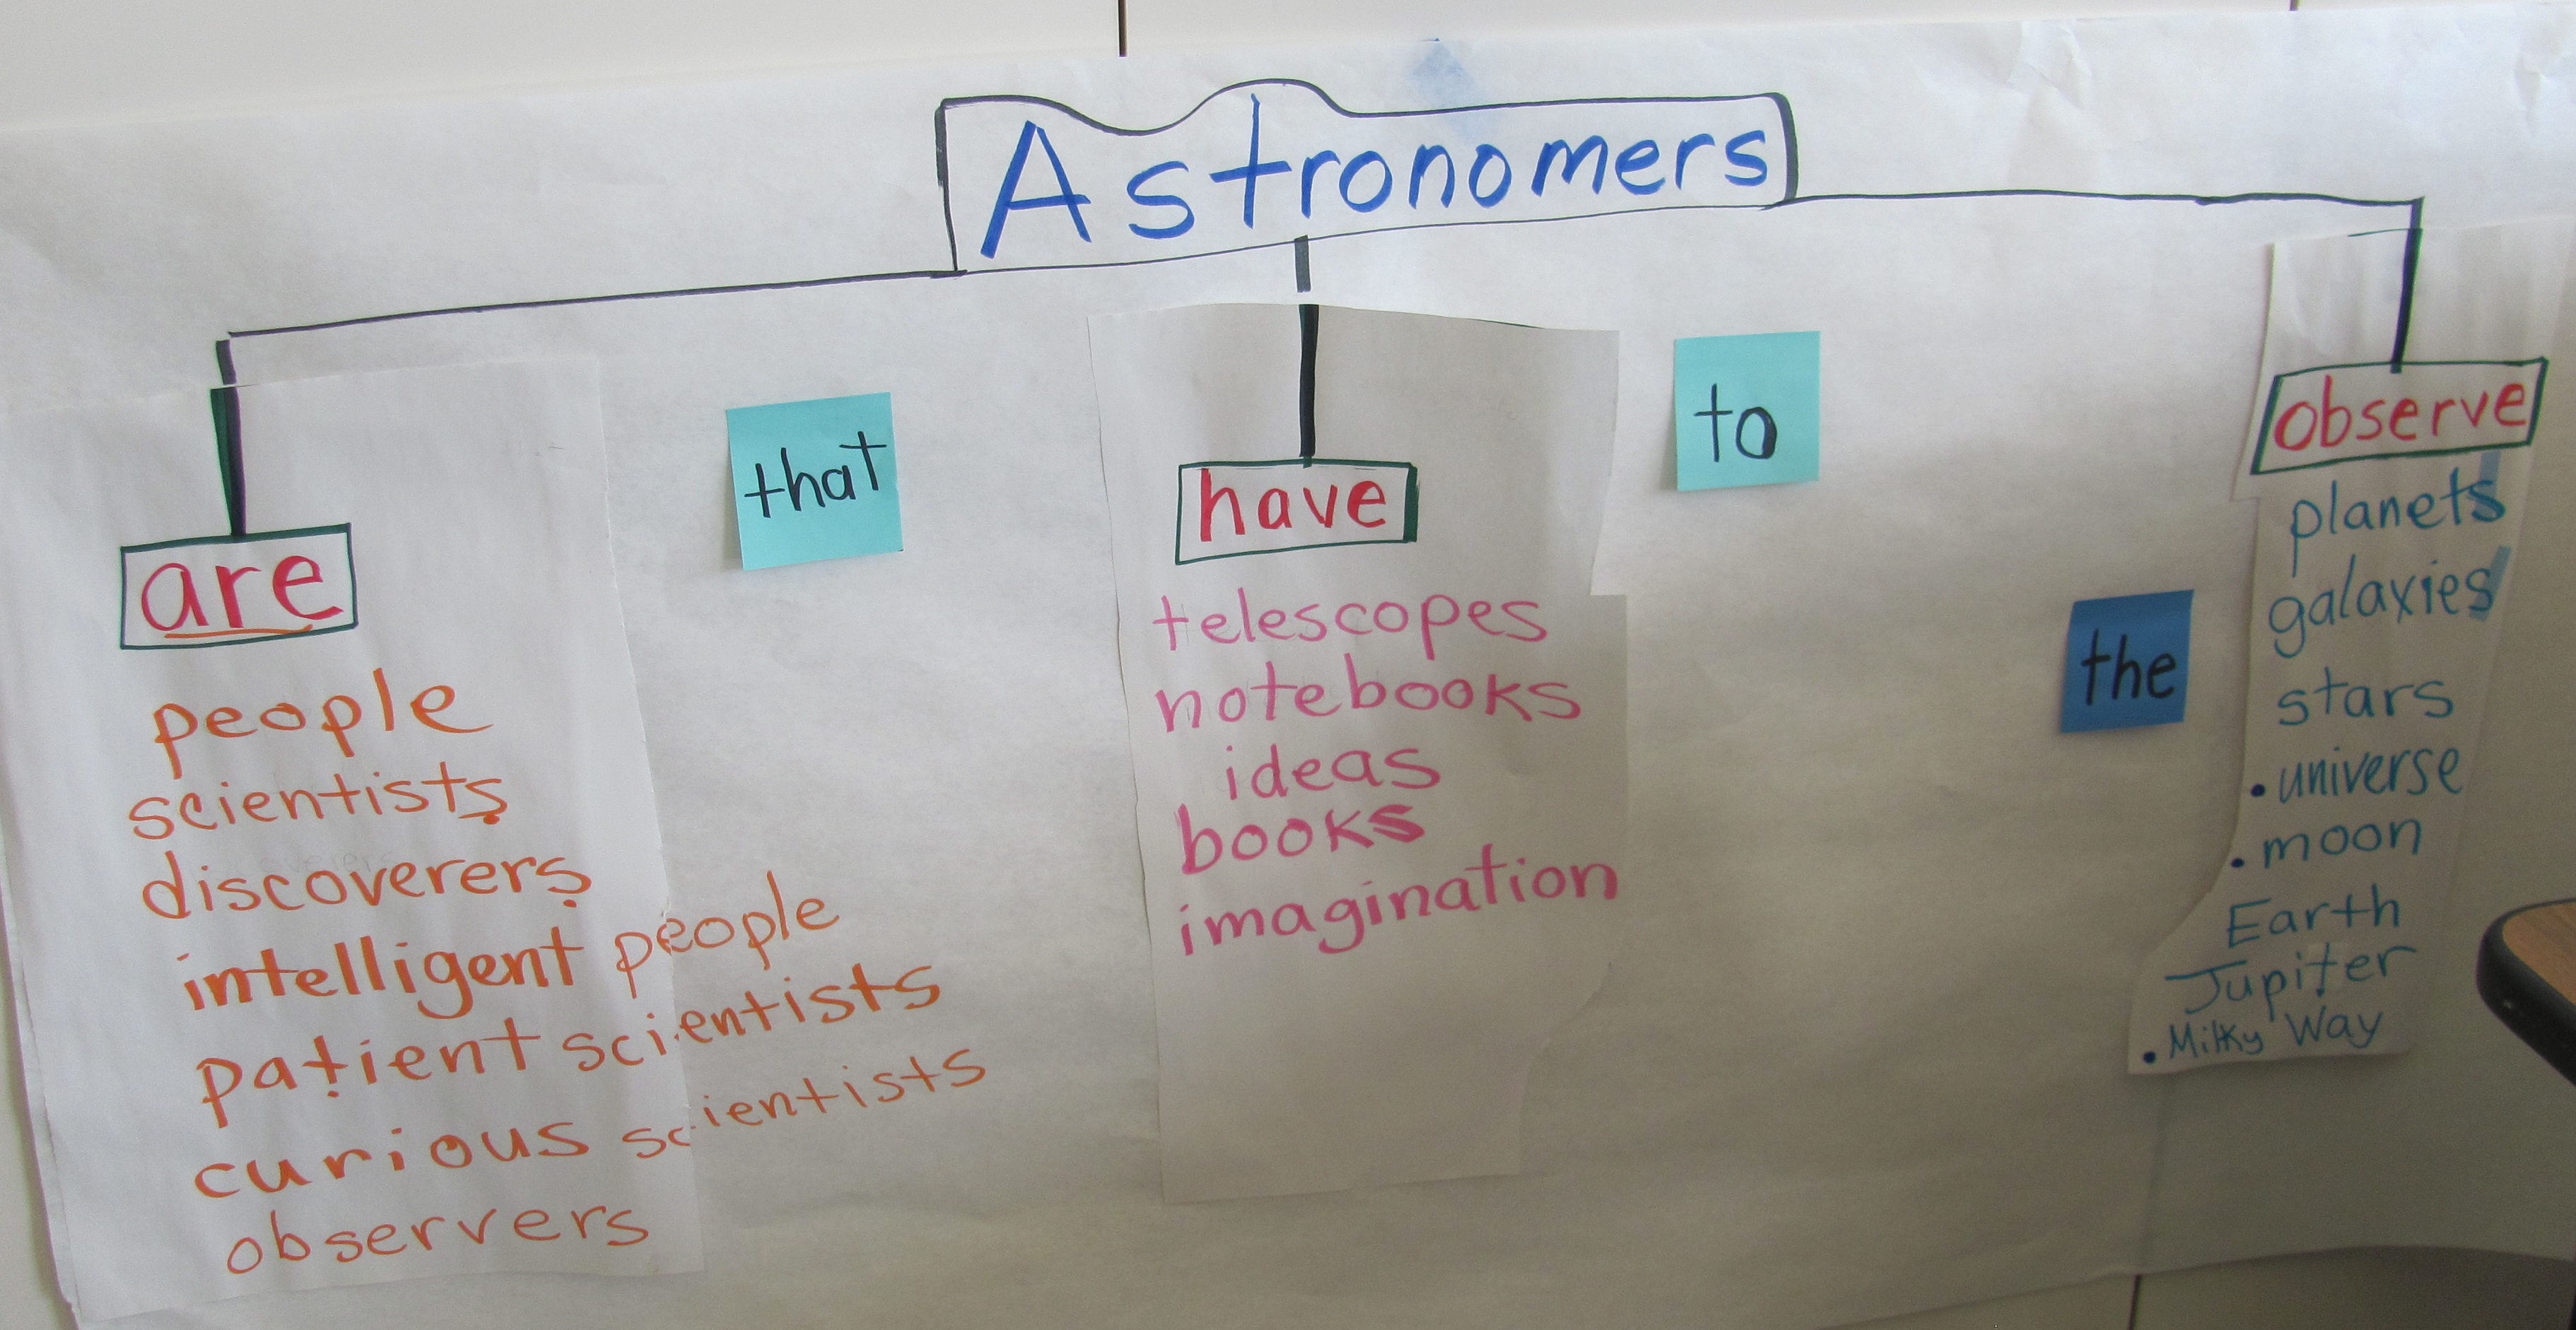 Astronomers
are
people
scientists
discoverers
intelligent people
patient scientists
curious scientists
observers
that
have
telescopes
notebooks
ideas
books
imagination
to
the
observe
planets
galaxies
stars
• universe
• moon
Earth
Jupiter
• Milky Way